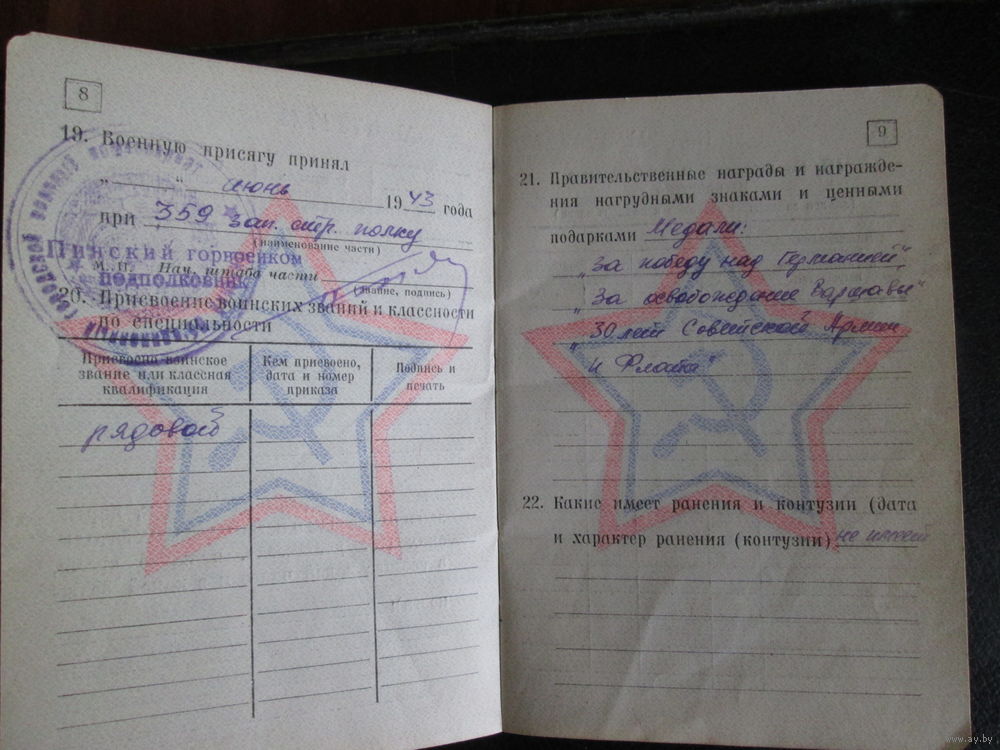 8
19. Военную присягу принял
„ “ июнь 1943 года
при 359 зап. стр. полку
(наименование части)
Пинский горвоенком
М. П. Нач. штаба части
(звание, подпись)
подполковник
20. Присвоение воинских званий и классности
по специальности
Присвоено воинское звание или классная квалификация
Кем присвоено, дата и номер приказа
Подпись и печать
рядовой
9
21. Правительственные награды и награжде-
ния нагрудными знаками и ценными
подарками Медали:
„За победу над Германией“,
„За освобождение Варшавы“
„30 лет Советской Армии
и Флота“
22. Какие имеет ранения и контузии (дата
и характер ранения (контузии) не имеет
www.ay.by